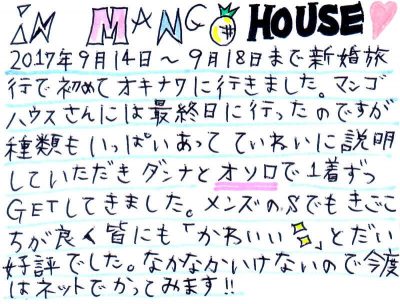 in MANGO HOUSE
2017年9月14日～9月18日まで新婚旅
行で初めてオキナワに行きました。マンゴ
ハウスさんには最終日に行ったのですが
種類もいっぱいあってていねいに説明
していただきダンナとオソロで1着ずつ
GETしてきました。メンズのSでもきごこ
ちが良く皆にも「かわいい」とだい
好評でした。なかなかいけないので今度
はネットでかってみます!!